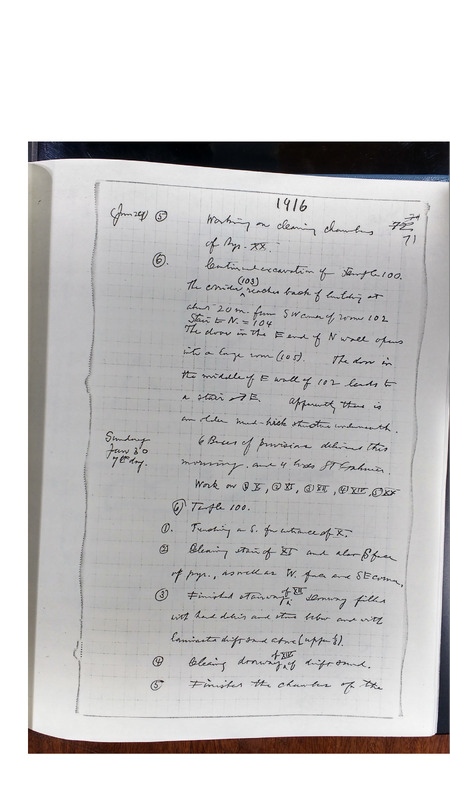 1916
(Jan 29) ⑤ Working on clearing chambers
71
of Pyr. XX.
⑥. Continued excavation of Temple 100.
(103)
The corridor reaches back of building at
about 20 m. from SW corner of room 102
Stair to N. = 104
The door in the E end of N wall opens
into a large room (105). The door in
the middle of E wall of 102 leads to
a stair E. Apparently there is
an older mud-brick structure underneath.
Sunday 6 Boxes of provisions delivered this
Jan 30 morning, and 4 boxes
7th day. Work on ① X, ② XI, ③ XII, ④ XIV, ⑤ XX
⑥ Temple 100.
①. Trenching on S. for entrance of X.
② Clearing stair of XI and also face
of pyr., as well as W. face and SE corner.
③ Finished stairway of XII Doorway filled
with hard debris and stones below and with
laminated drift sand above (upper ½).
④ Clearing doorway of XIV of drift sand.
⑤ Finished the chamber of the